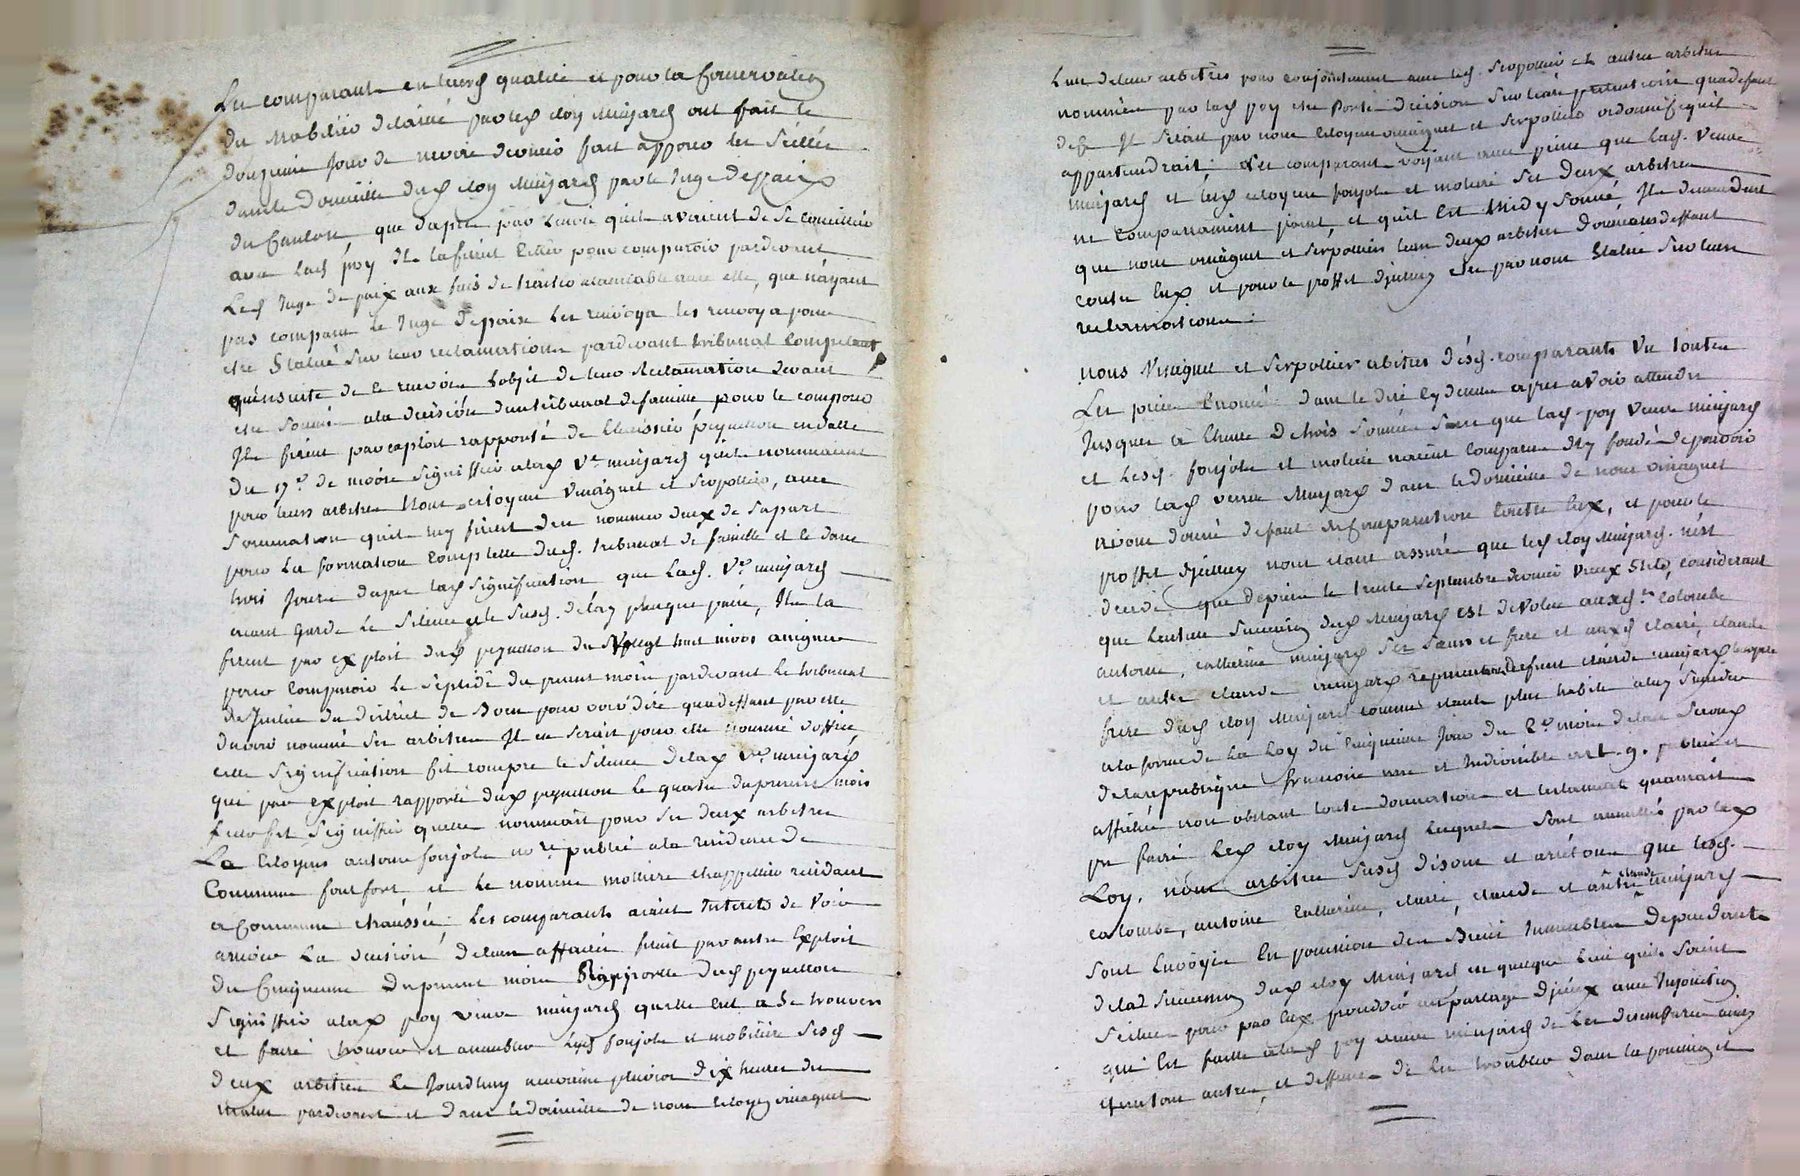 Les comparants en leurs qualité et pour la Conservation
du Mobilier delaissé par led eloy Minjard ont fait le
jour de nivose dernier fait apposer les scellés
dans le Domicille dud eloy Minjard par le Juge de paix
du Canton que dapres par Lenvie quils avaient de se concillier
avec lad poy Ils la firent citter pour comparoir pardevant
Led Juge de paix aux fins de traitter alamiable avec elle, que nayant
pas comparu le Juge de paix les renvoya les renvoya pour
etre Statué sur leur reclamation pardevant tribunal Competent
quensuite de ce renvoi Lobjet de leur Reclamation devant
etre soumis ala decision dun tribunal de famille pour le composer
Ils firent par exploit rapporté de Lhuissier peguillon en datte
du 17e de nivose signiffier alad Ve minjard quils nommaient
pour leurs arbitres Nous citoyens Vinagnet et Serpollier, avec
Sommation quils luy firent den nommer deux de sa part
pour La formation complette dud. tribunal de famille et ce dans
trois jours dapres lad signification que Lad. Ve minjard
aiant gardé le silence et le susd. delay plusque passé, Ils la
firent par exploit dud peguillon du vingt huit nivos assigner
pour Comparoir le septidi du present mois pardevant le tribunal
de Justice du district de pour voir dire qua deffaut par elle
davoir nommé ses arbitres Il en serait pour elle nommé doffice,
cette signification fit rompre le silence de lad Ve minjard
qui par exploit rapporté dud peguillon le quatre du present mois
leur fit signiffier quelle nommait pour ses deux arbitres
Le Citoyens antoine fonjols nore public ala residence de
Commune fontfort et le nommé molliere chappellier residant
a Commune chaussée. Les comparants aiant Interets de voir
arriver La decision de leur affaire firent par autre Exploit
du Cinquieme du present mois Rapporté dud peguillon
signiffier alad poy veuve minjard quelle eut a se trouver
et faire trouver et assembler lesd fonjols et mollière sesd
deux arbitres le Jourdhuy neuvieme pluviose dix heures du
matin pardevant et dans le domicille de nous Citoyen vinagnet
Lun de leurs arbitres pour conjointement avec led. Serpollier et autres arbitres
nommés par lad poy etre Porté decision sur leurs petitions que deffaut
de ce Il serait par nous Citoyens vinagnet et Serpollier ordonné ce quil
appartiendrait. Les comparants voyant avec peine que lad. veuve
minjard et lesd citoyens fonjols et moliere ses deux arbitres
ne comparaissent point, et quil est Midy sonné Ils demandent
que nous vinagnet et Serpollier leurs deux arbitres donnions deffaut
contre Eux et pour le proffit dyceluy etre par nous Statué sur leurs
reclamations.
nous Vinagnet et Serpollier abitres desd. comparants Vu toutes
Les pieces Enoncé dans le dire cy dessus apres avoir attendu
Jusques à Lheure de trois sonnée sans que lad. poy Veuve minjard
et Lesd. fonjols et moliere naient comparu Ny fondé de pouvoir
pour lad veuve Minjard dans le domicille de nous vinagnet
avons donné defaut de Comparution contre Eux, et pour le
proffit dycelluy nous etant assuré que led eloy Minjard. nest
decedé que depuis le trente Septembre dernier vieux Stile, considerant
que Lentiere succession dud Minjard est devolue auxd. Colombe
antoine, catherine minjard ses sœurs et frere et auxd Claire, claude
et autre claude minjard representant defunt claude minjard
frere dud eloy Minjard comme etants plus habile aluy succeder
ala forme de La Loy du Cinquieme Jour du 2e mois de lan Second
de la republique francaise une et Indivisible art. 9. publié et
affiché non obstant toute donnation et testament quaurait
pu faire Led eloy Minjard lesquels sont annullés par lad
Loy, nous arbitres susd disons et arretons que lesd.
colombe, antoine Catherine, claire, claude et autre claude minjard
sont Envoyés En possession des Biens Immeubles dependants
de lad succession dud eloy Minjard en quelque lieu quils soient
Scitués pour par Eux procedé au partage dyceux avec Injonction
qui Est faitte alad poy veuve minjard de les desemparer aud
et tous autres et deffense de les troubler dans la possession et